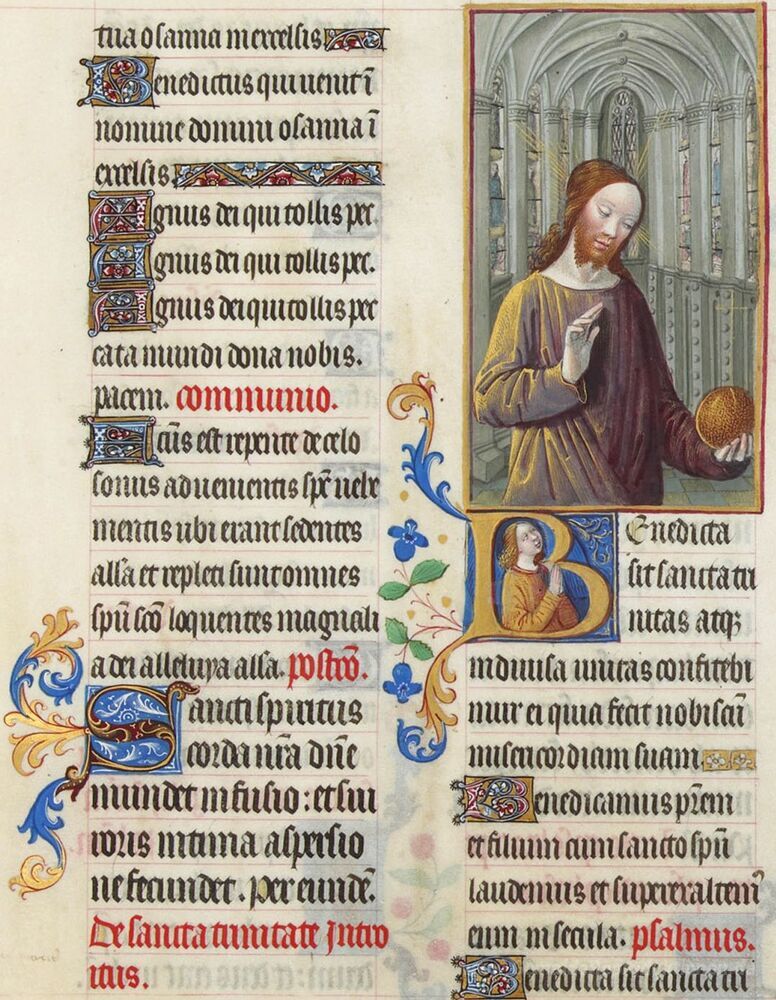 tua osanna in excelsis
Benedictus qui uenit ī
nomine domini osanna ī
excelsis.
Agnus dei qui tollis pec.
Agnus dei qui tollis pec.
Agnus dei qui tollis pec
cata mundi dona nobis.
pacem. communio.
Factus est repente de celo
sonus aduenientis spīr uehe
mentis ubi erant sedentes
alla et repleti sunt omnes
spū scō loquentes magnali
a dei alleluya alla. postcō.
Sancti spiritus
corda nr̄a dn̄e
mundet infusio: et sui
roris intima aspersio
ne fecundet. Per eundē.
De sancta trinitate Intro
itus.
BEnedicta
sit sancta tri
nitas atqꝫ
indiuisa unitas confitebi
mur ei quia fecit nobiscū
misericordiam suam
Benedicamus pr̄em
et filium cum sancto spū
laudemus et superexaltem⁹
eum in secula. psalmus.
Benedicta sit sancta tri